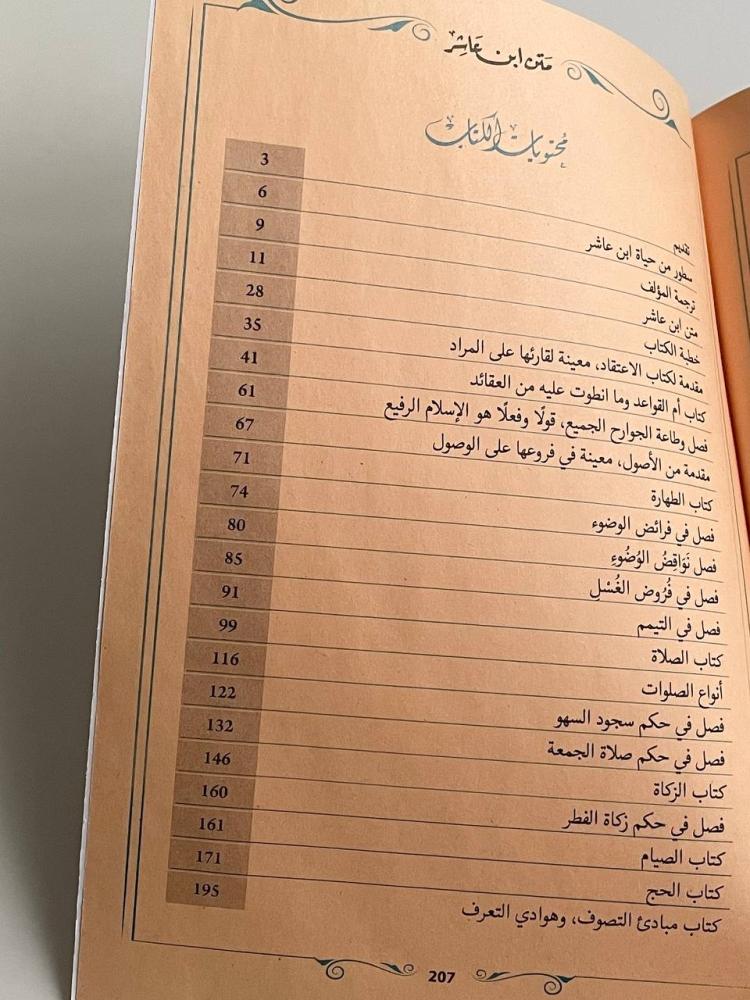 متن ابن عاشر
محتويات الكتاب
تقديم 3
سطور من حياة ابن عاشر 6
ترجمة المؤلف 9
متن ابن عاشر 11
خطبة الكتاب 28
مقدمة لكتاب الاعتقاد، معينة لقارئها على المراد 35
كتاب أم القواعد وما انطوت عليه من العقائد 41
فصل وطاعة الجوارح الجميع، قولًا وفعلًا هو الإسلام الرفيع 61
مقدمة من الأصول، معينة في فروعها على الوصول 67
كتاب الطهارة 71
فصل في فرائض الوضوء 74
فصل نَوَاقِضُ الوُضُوءِ 80
فصل في فُرُوض الغُسْلِ 85
فصل في التيمم 91
كتاب الصلاة 99
أنواع الصلوات 116
فصل في حكم سجود السهو 122
فصل في حكم صلاة الجمعة 132
كتاب الزكاة 146
فصل في حكم زكاة الفطر 160
كتاب الصيام 161
كتاب الحج 171
كتاب مبادئ التصوف، وهوادي التعرف 195
207